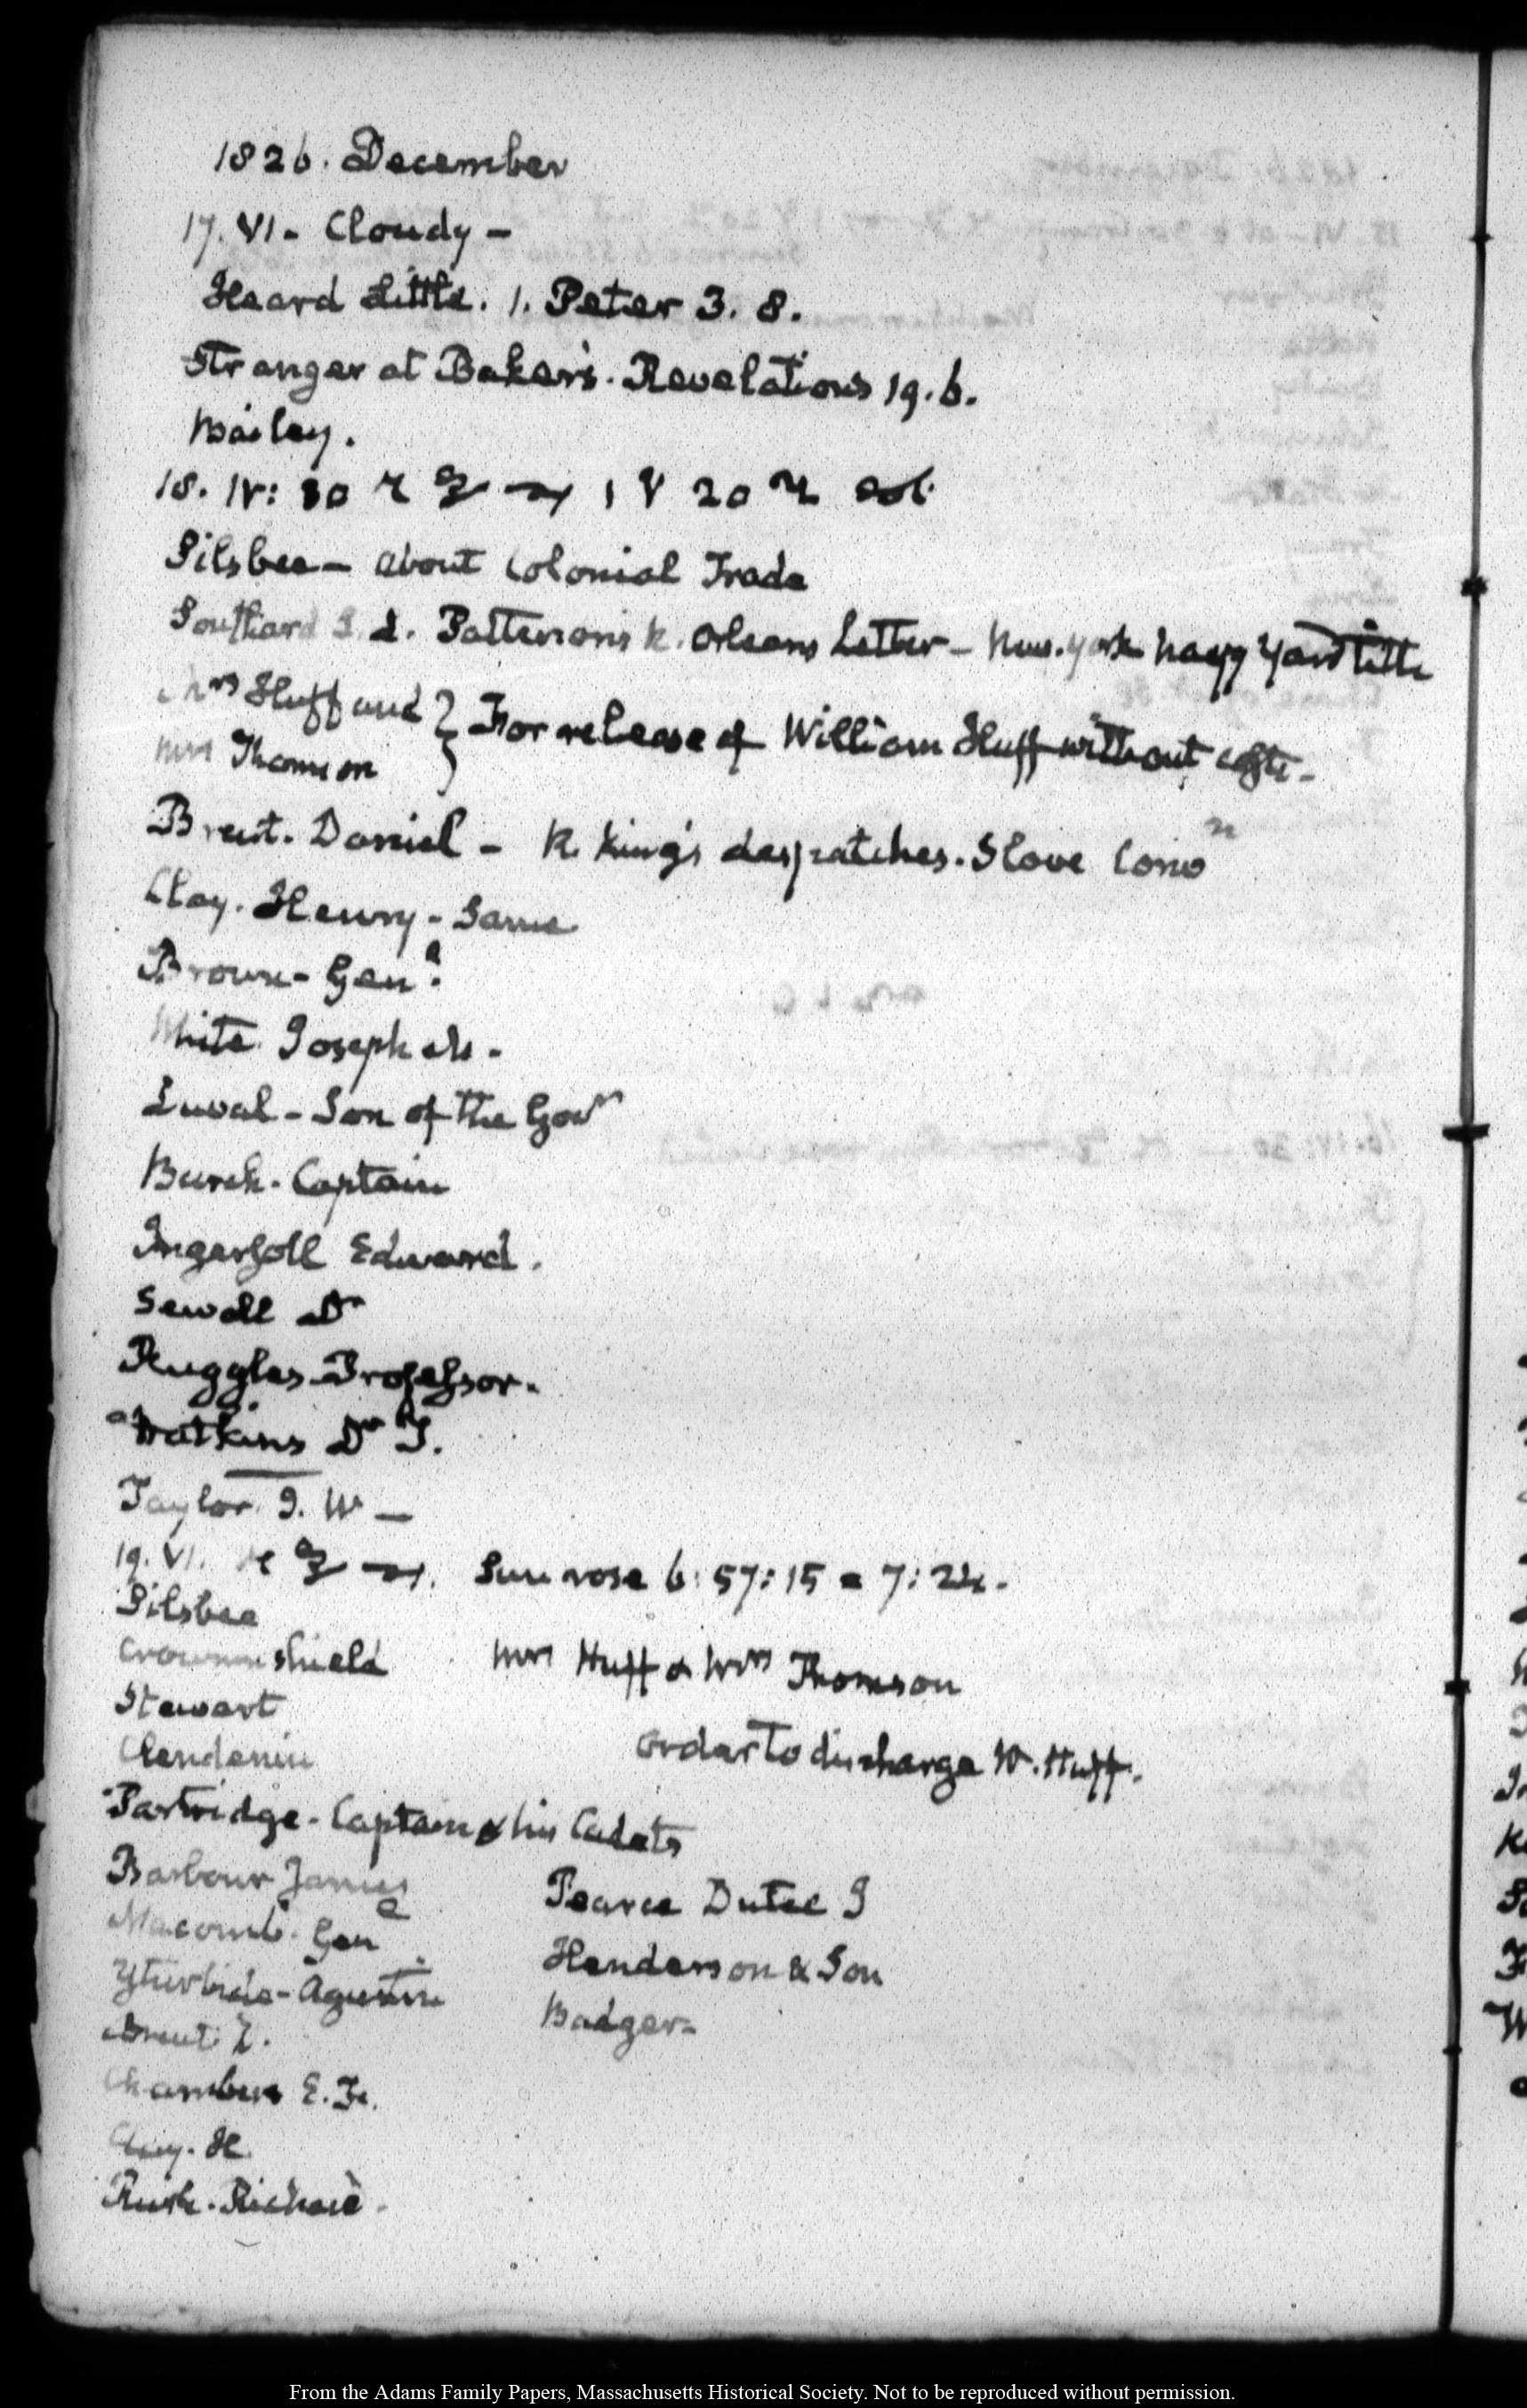 1826. December
17. VI. Cloudy –
Heard Little. 1. Peter 3. 8.
Stranger at Baker's. Revelations 19. 6.
Bailey.
18. IV: 30
Silsbee – about Colonial Trade
Southard S. L. Patterson's N. Orleans Letter – New. York Navy Yard title
Mrs Huff and } For release of William Huff without costs –
Mrs Thomson
Brent. Daniel – R. King's despatches. Slave Conv.n
Clay. Henry – Same
Brown – Gen.l
White Joseph M. –
Duval – Son of the Gov.r
Burch. Captain
Ingersoll Edward.
Sewall Dr
Ruggles Professor.
Watkins Dr T.
Taylor. J. W –
19. VI. Sun rose 6: 57: 15 = 7: 24.
Silsbee
Crowninshield Mrs Huff & Mrs Thomson
Stewart
Clendenin Order to discharge W. Huff.
Partridge – Captain & his Cadets
Barbour James Pearce Dutee J
Macomb. Gen.l
Henderson & Son
Yturbide – Agustin
Badger –
Brent
Chambers E. F.
Clay. H.
Rush. Richard.
From the Adams Family Papers, Massachusetts Historical Society. Not to be reproduced without permission.